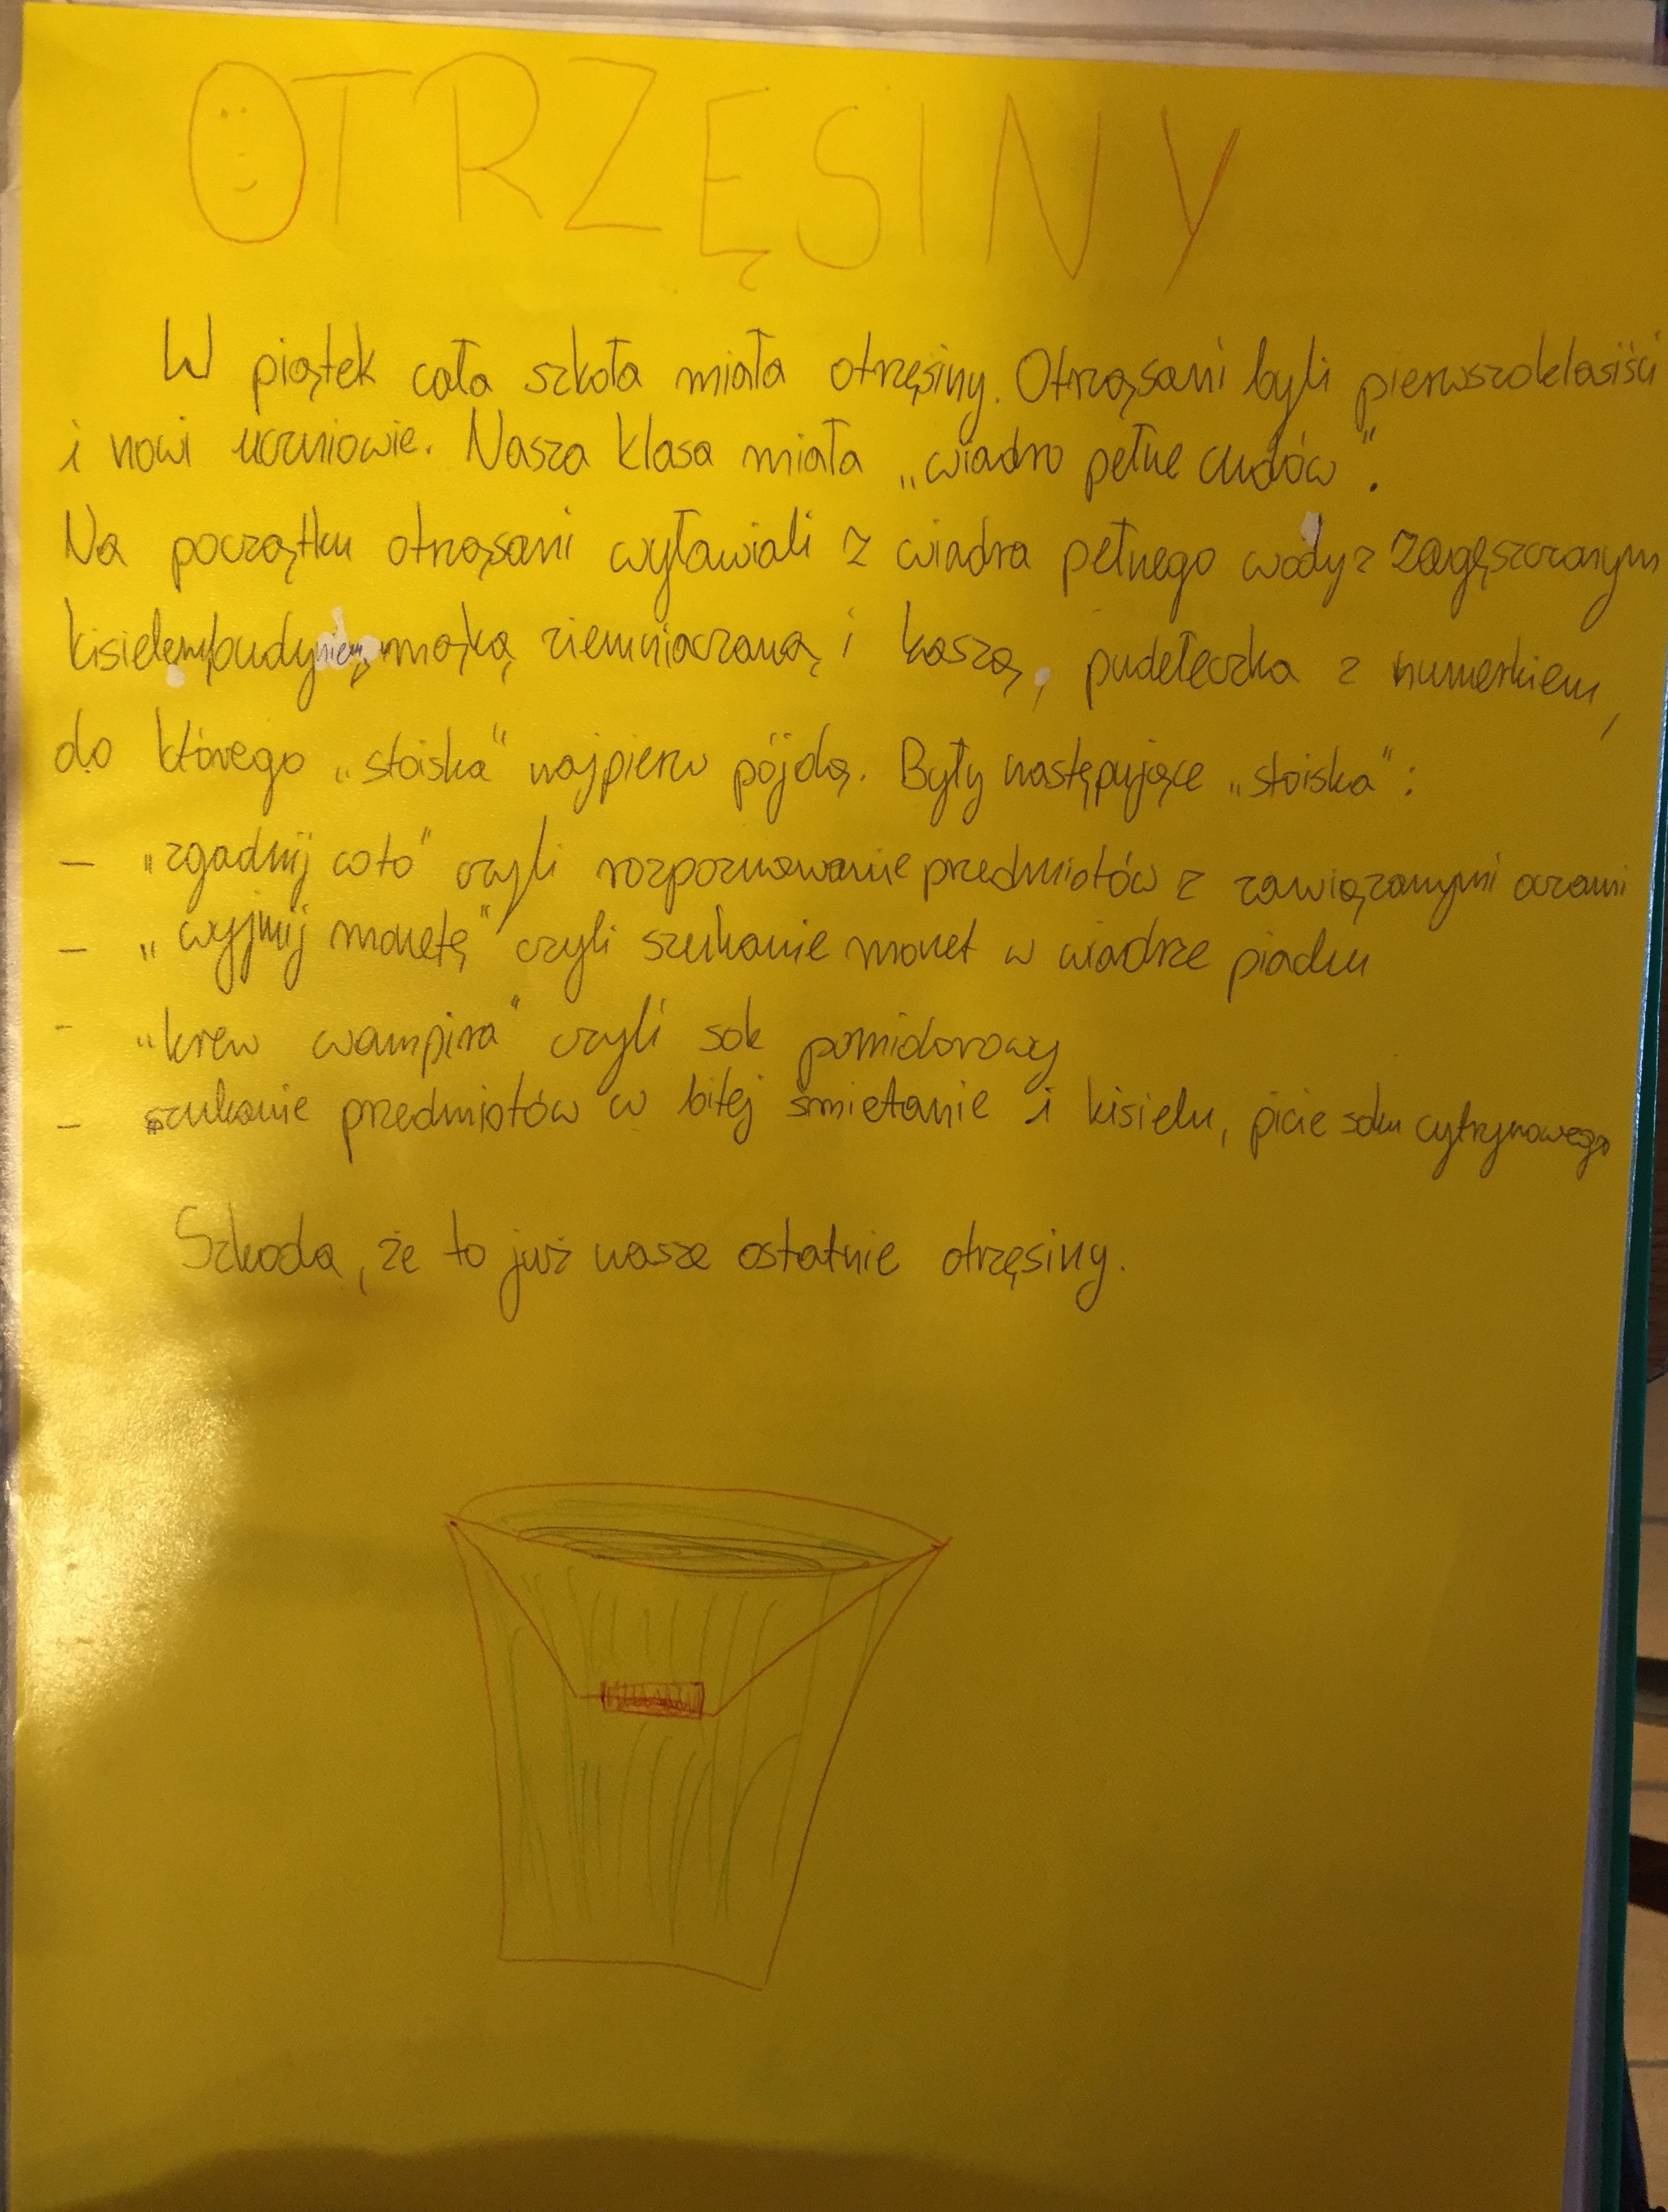 OTRZĘSINY
W piątek cała szkoła miała otrzęsiny. Otrząsani byli pierwszoklasiści
i nowi uczniowie. Nasza klasa miała „wiadro pełne cudów".
Na początku otrząsani wyławiali z wiadra pełnego wody z zagęszczanym
kisielem, budyniem, mąką ziemniaczaną i kaszą, pudełeczka z numerkiem,
do którego „stoiska" najpierw pójdą. Były następujące „stoiska":
- „zgadnij co to" czyli rozpoznawanie przedmiotów z zawiązanymi oczami
- „wyjmij monetę" czyli szukanie monet w wiadrze piachu
- „krew wampira" czyli sok pomidorowy
- szukanie przedmiotów w bitej śmietanie i kisielu, picie soku cytrynowego
Szkoda, że to już nasze ostatnie otrzęsiny.